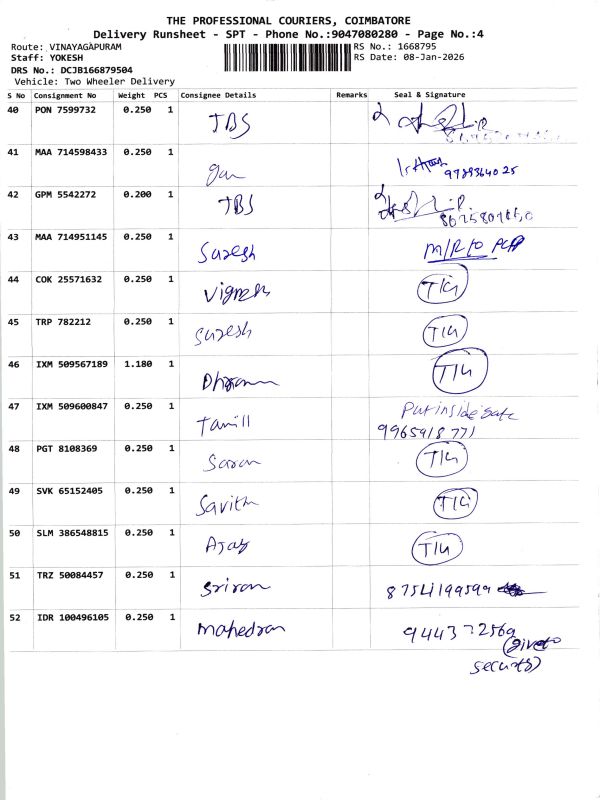 THE PROFESSIONAL COURIERS, COIMBATORE
Delivery Runsheet - SPT - Phone No.:9047080280 - Page No.:4
Route: VINAYAGAPURAM RS No.: 1668795
Staff: YOKESH RS Date: 08-Jan-2026
DRS No.: DCJB166879504
Vehicle: Two Wheeler Delivery
S No Consignment No Weight PCS Consignee Details Remarks Seal & Signature
40 PON 7599732 0.250 1 JBS
41 MAA 714598433 0.250 1 9789364025
42 GPM 5542272 0.200 1 JBS
43 MAA 714951145 0.250 1 Suresh M/R to
44 COK 25571632 0.250 1 Vignesh TIG
45 TRP 782212 0.250 1 Suresh TIG
46 IXM 509567189 1.180 1 TIG
47 IXM 509600847 0.250 1 Tamill Put inside gate
9965918771
48 PGT 8108369 0.250 1 Saran TIG
49 SVK 65152405 0.250 1 Savith TIG
50 SLM 386548815 0.250 1 Ajay TIG
51 TRZ 50084457 0.250 1 Sriram 8754199599
52 IDR 100496105 0.250 1 Mahedran
give to